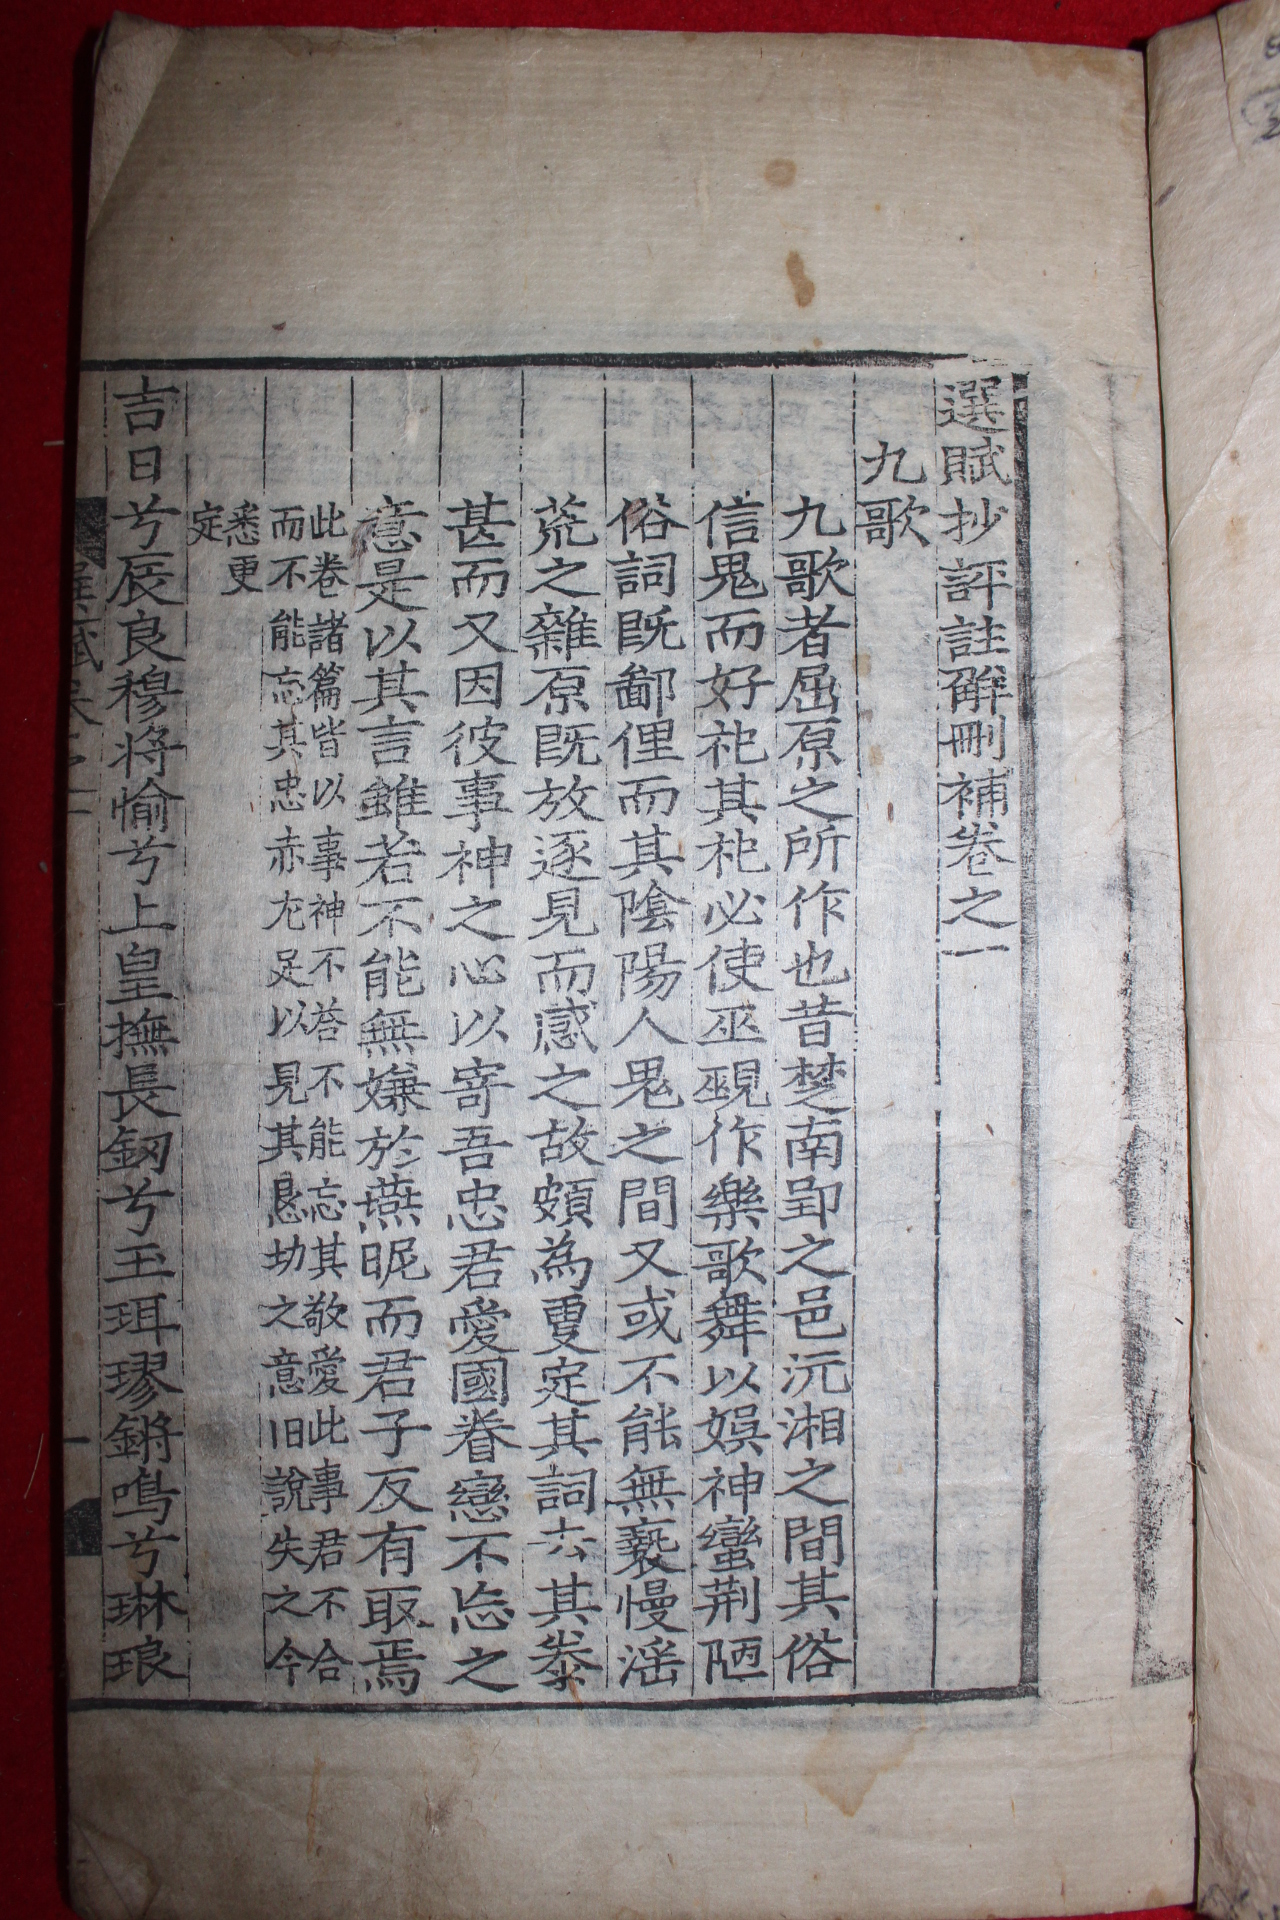 選賦抄評註解刪補卷之一
九歌
九歌者屈原之所作也昔楚南郢之邑沅湘之間其俗
信鬼而好祀其祀必使巫覡作樂歌舞以娛神蠻荆陋
俗詞旣鄙俚而其陰陽人鬼之間又或不能無褻慢淫
荒之雜原旣放逐見而感之故頗為更定其詞去其泰
甚而又因彼事神之心以寄吾忠君愛國眷戀不忘之
意是以其言雖若不能無嫌於燕昵而君子反有取焉
此卷諸篇皆以事神不荅不能忘其敬愛此事君不合
而不能忘其忠赤尤足以見其懇切之意旧說失之今
悉更
定
吉日兮辰良穆將愉兮上皇撫長釰兮玉珥璆鏘鳴兮琳琅